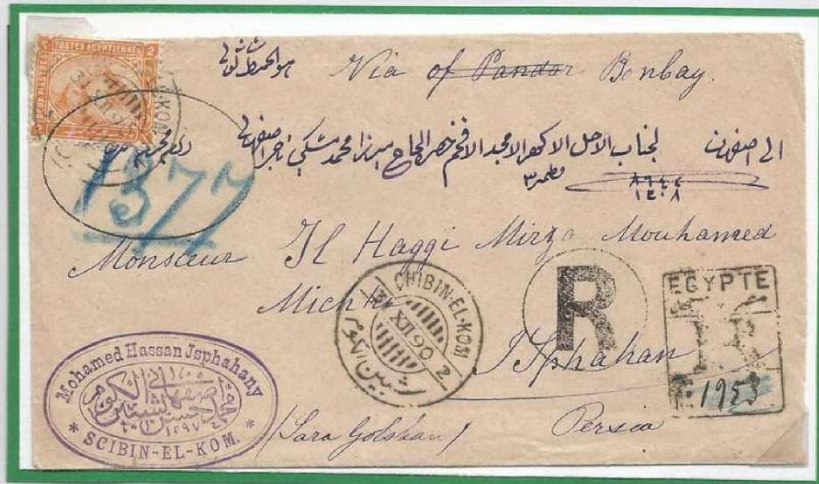 POSTES EGYPTIENNES
Via of Pandar Bonbay.
الى اصفهان لجناب الاجل الاكرم الامجد الافخم حضرة الحاج ميرزا محمد مشكي تاجر اصفهاني
٨٦٤٢
١٣٠٨
1377
Monsieur Il Haggi Mirza Mouhamed
CHIBIN-EL-KOM
31 XII 90
2
شبين الكوم
R
EGYPTE
R
1953
Isphahan
Persia
(Sara Golshan)
Mohamed Hassan Jsphahany
١٢٩٧
* SCIBIN-EL-KOM. *